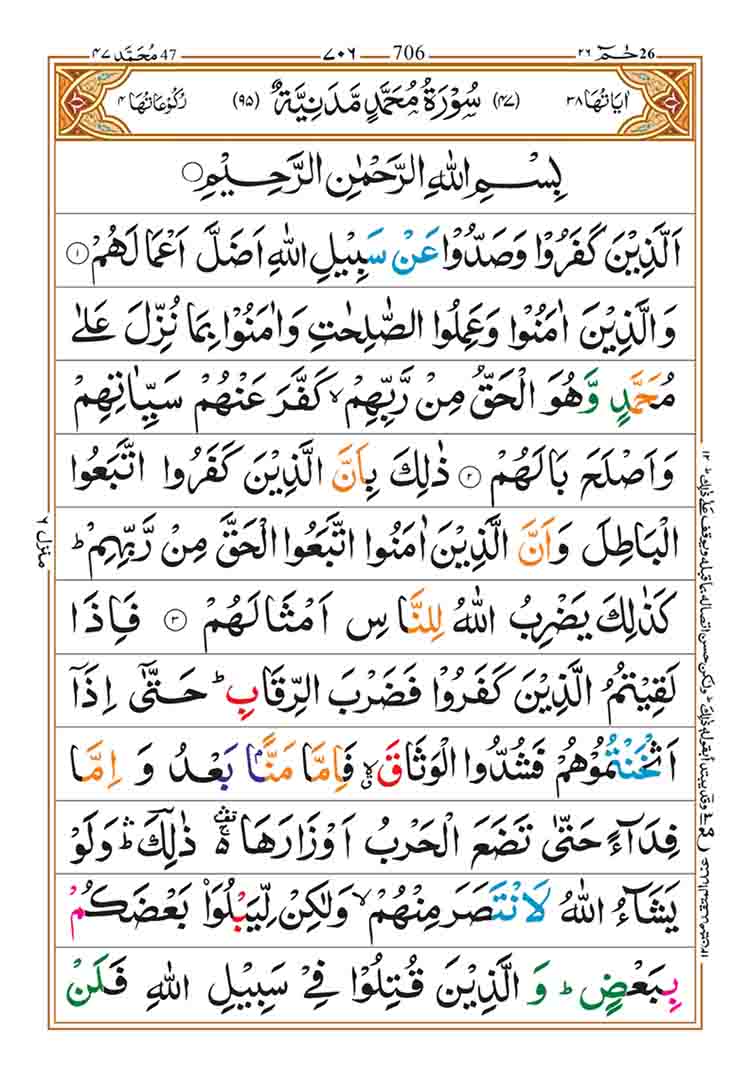 محمد ٤٧ 47 ٧٠٦ 706 حٰمٓ ٢٦ 26
اٰيَاتُهَا ٣٨ (٤٧) سُوْرَةُ مُحَمَّدٍ مَّدَنِيَّةٌ (٩٥) رُكُوْعَاتُهَا ٤
بِسْمِ اللّٰهِ الرَّحْمٰنِ الرَّحِيْمِ ○
اَلَّذِيْنَ كَفَرُوْا وَصَدُّوْا عَنْ سَبِيْلِ اللّٰهِ اَضَلَّ اَعْمَالَهُمْ ١
وَالَّذِيْنَ اٰمَنُوْا وَعَمِلُوا الصّٰلِحٰتِ وَاٰمَنُوْا بِمَا نُزِّلَ عَلٰى
مُحَمَّدٍ وَّهُوَ الْحَقُّ مِنْ رَّبِّهِمْ ۙ كَفَّرَ عَنْهُمْ سَيِّاٰتِهِمْ
وَاَصْلَحَ بَالَهُمْ ٢ ذٰلِكَ بِاَنَّ الَّذِيْنَ كَفَرُوا اتَّبَعُوا
الْبَاطِلَ وَاَنَّ الَّذِيْنَ اٰمَنُوا اتَّبَعُوا الْحَقَّ مِنْ رَّبِّهِمْ ؕ
كَذٰلِكَ يَضْرِبُ اللّٰهُ لِلنَّاسِ اَمْثَالَهُمْ ٣ فَاِذَا
لَقِيْتُمُ الَّذِيْنَ كَفَرُوْا فَضَرْبَ الرِّقَابِ ؕ حَتّٰٓى اِذَآ
اَثْخَنْتُمُوْهُمْ فَشُدُّوا الْوَثَاقَ ۙ فَاِمَّا مَنًّاۢ بَعْدُ وَ اِمَّا
فِدَآءً حَتّٰى تَضَعَ الْحَرْبُ اَوْزَارَهَا ذٰلِكَ ۛؕ وَلَوْ
يَشَآءُ اللّٰهُ لَانْتَصَرَ مِنْهُمْ ۙ وَلٰكِنْ لِّيَبْلُوَا۟ بَعْضَكُمْ
بِبَعْضٍ ؕ وَ الَّذِيْنَ قُتِلُوْا فِيْ سَبِيْلِ اللّٰهِ فَلَنْ
منزل ٦